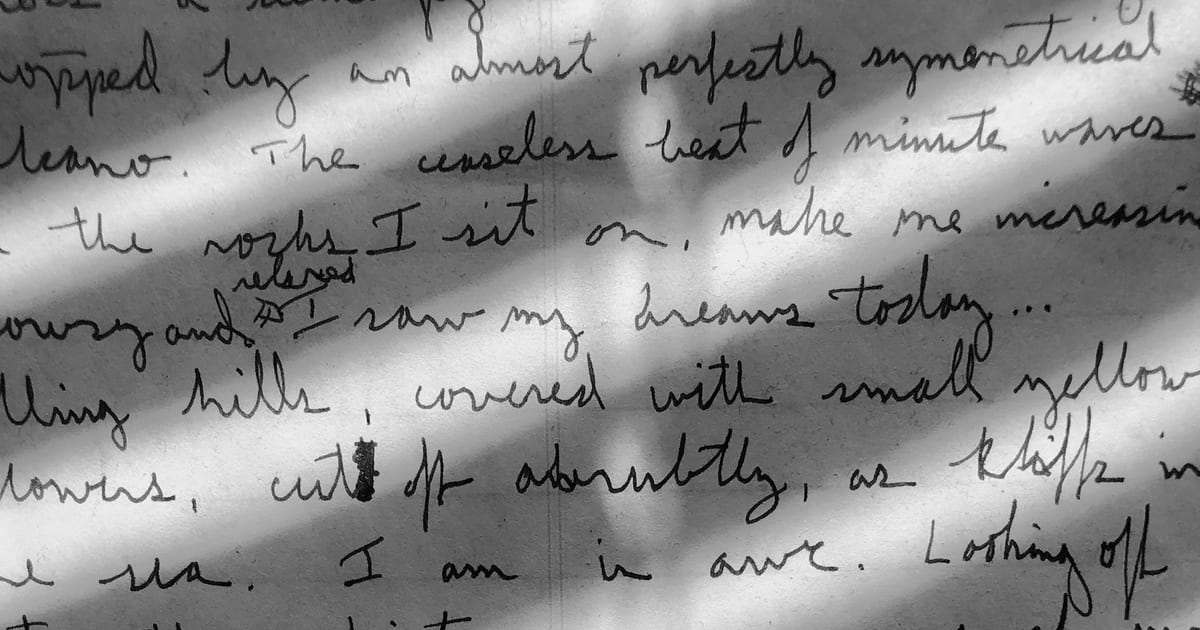 opped by an almost perfestly symmetrical
lcano. The ceaseless beat of minute waves
the rocks I sit on, make me increasin
relaxed
owsy and I saw my dreams today...
lling hills, covered with small yellow
lowers, cut off abrubtly, as kliffs in
e sea. I am in awe. Looking off